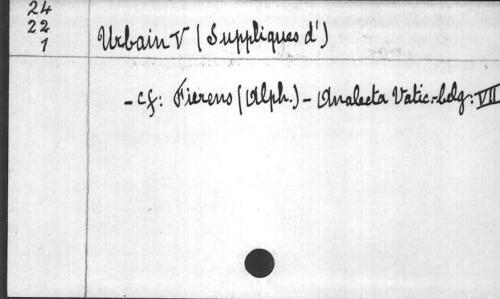 24
22
1
Urbain V (Suppliques d')
- cf: Fierens (Alph.) - Analecta Vatic.-belg: VII